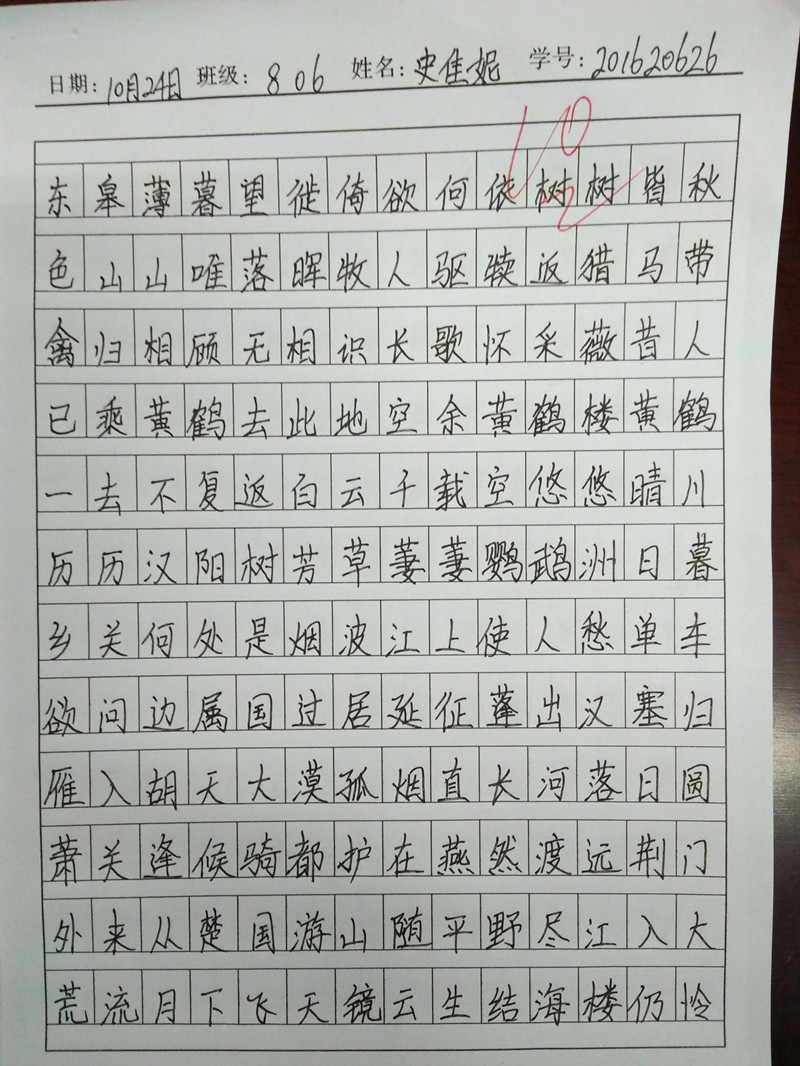 日期：10月24日 班级：806 姓名：史佳妮 学号：201620626
东皋薄暮望徙倚欲何依树树皆秋
色山山唯落晖牧人驱犊返猎马带
禽归相顾无相识长歌怀采薇昔人
已乘黄鹤去此地空余黄鹤楼黄鹤
一去不复返白云千载空悠悠晴川
历历汉阳树芳草萋萋鹦鹉洲日暮
乡关何处是烟波江上使人愁单车
欲问边属国过居延征蓬出汉塞归
雁入胡天大漠孤烟直长河落日圆
萧关逢候骑都护在燕然渡远荆门
外来从楚国游山随平野尽江入大
荒流月下飞天镜云生结海楼仍怜